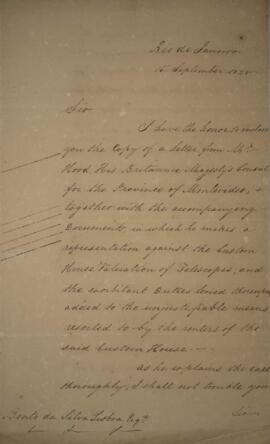 Rio de Janeiro
15 September 182
Sir
I have the honor to inclose
you the Copy of a letter from Mr.
Hood, His Britannic Majesty's Consul
for the Province of Montevideo,
together with the accompanying
Documents, in which he makes a
representation against the Custom
House Valuation of Telescopes, and
the exorbitant Duties levied thereupon,
added to the means
resorted to by the renters of the
said Custom House
as he explains the case
thoroughly, I shall not trouble you
Sir
Bento da Silva Lisboa Esqr.